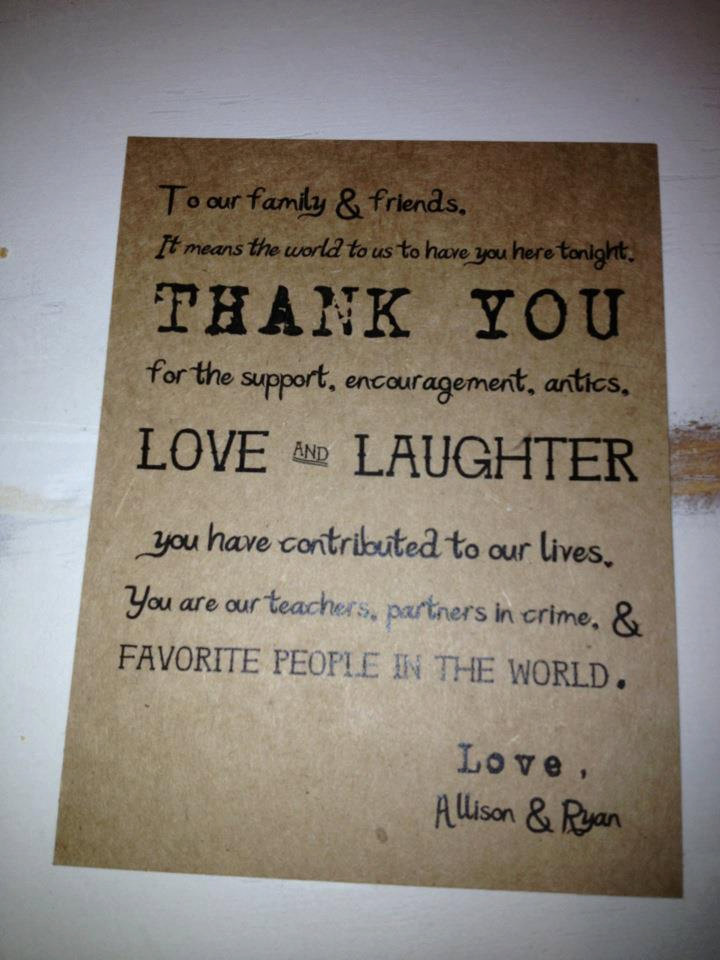 To our family & friends.
It means the world to us to have you here tonight.
THANK YOU
for the support, encouragement, antics,
LOVE AND LAUGHTER
you have contributed to our lives.
You are our teachers, partners in crime, &
FAVORITE PEOPLE IN THE WORLD.
Love,
Allison & Ryan